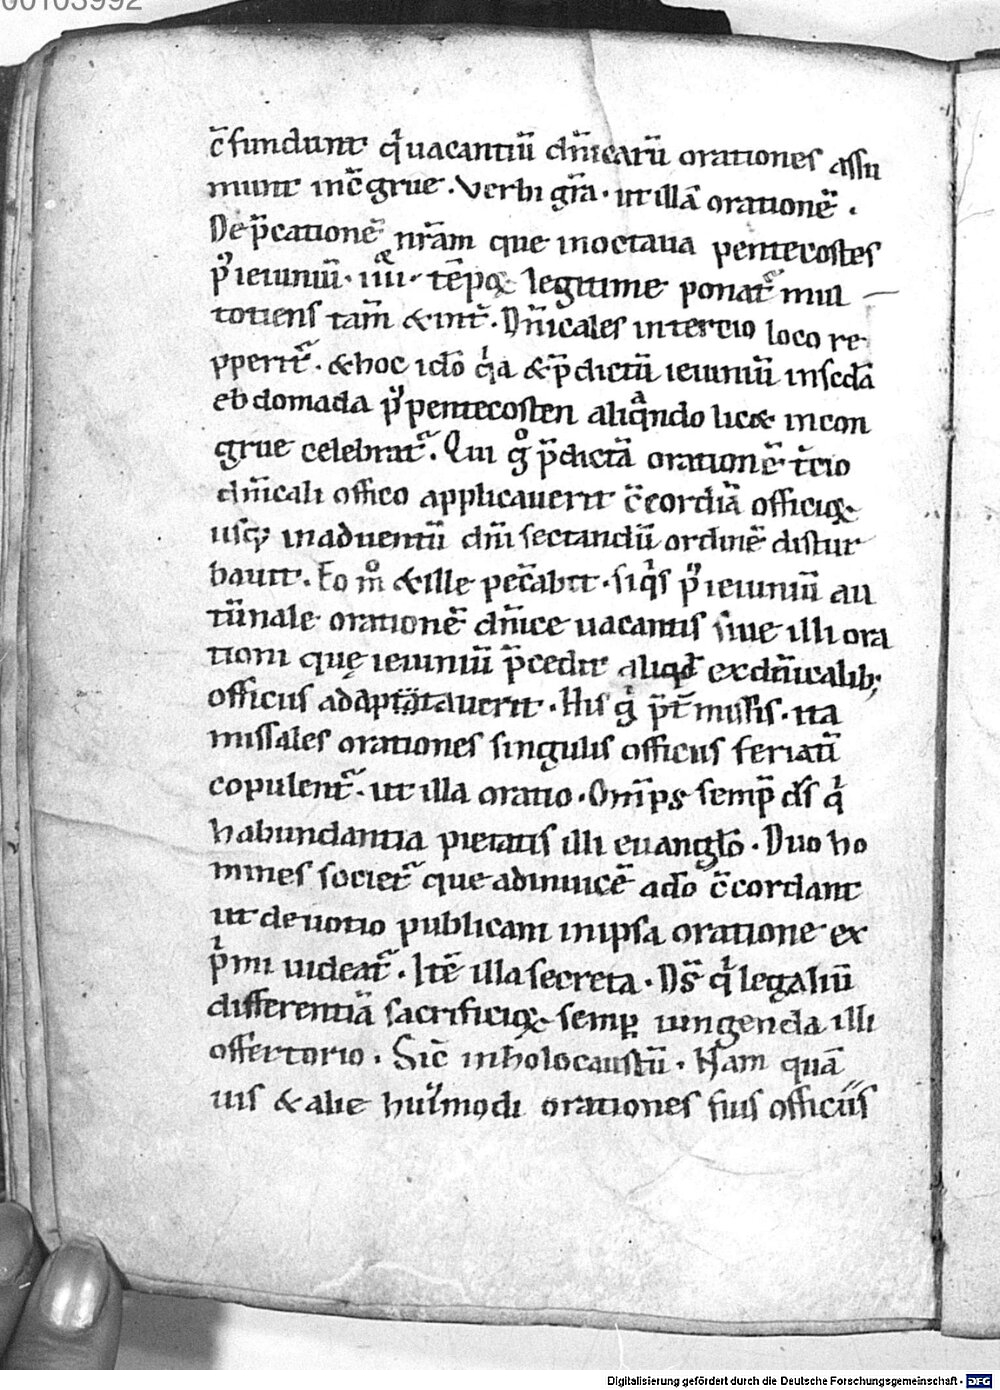 00103992
c̄fundunt qͥ uacantiū dn̄icarū orationes assu
munt incōgrue. Verbi gr̄a. ut illā orationē.
Dep̄cationē nr̄am que inoctaua pentecostes
p͛ ieiuniū. iiii. tēpoꝝ legitime ponat᷑ mul
totiens tam̄ & int̄. Dn̄icales intercio loco re
pperit᷑. & hoc ido̅ qͥa & p̄dictū ieiuniū insc̄da
ebdomada p͛ pentecosten aliqͣndo licet incon
grue celebrat᷑. Qui gͦ p̄dictā orationē t̄cio
dn̄icali officio applicauerit c̄cordiā officioꝝ
usq; inaduentū dn̄i sectandū ordinē distur
bauit. Eo mͦ & ille peccabit. siqͥs p͛ ieiuniū au
tūnale orationē dn̄ice uacantis siue illi ora
tioni quę ieiuniū p̄cedit aliqd̄ ex dn̄icalib;
officiis adaptatauerit. His gͥ p̄t̄missis. ita
missales orationes singulis officiis feriatī
copulent᷑. ut illa oratio. Om̄ps semp̄ ds̄ qͥ
habundantia pietatis illi euanglo̅. Duo ho
mines societ᷑ que adinuicē ado̅ c̄cordant
ut deuotio publicani inipsa oratione ex
pͥmi uideat᷑. Itē illa secreta. Ds̄ qͥ legaliū
differentiā sacrificioꝝ semꝑ iungenda illi
offertorio. Sic̄ inholocaustū. Nam quā
uis & alie hui͛modi orationes suis officiis
Digitalisierung gefördert durch die Deutsche Forschungsgemeinschaft - DFG